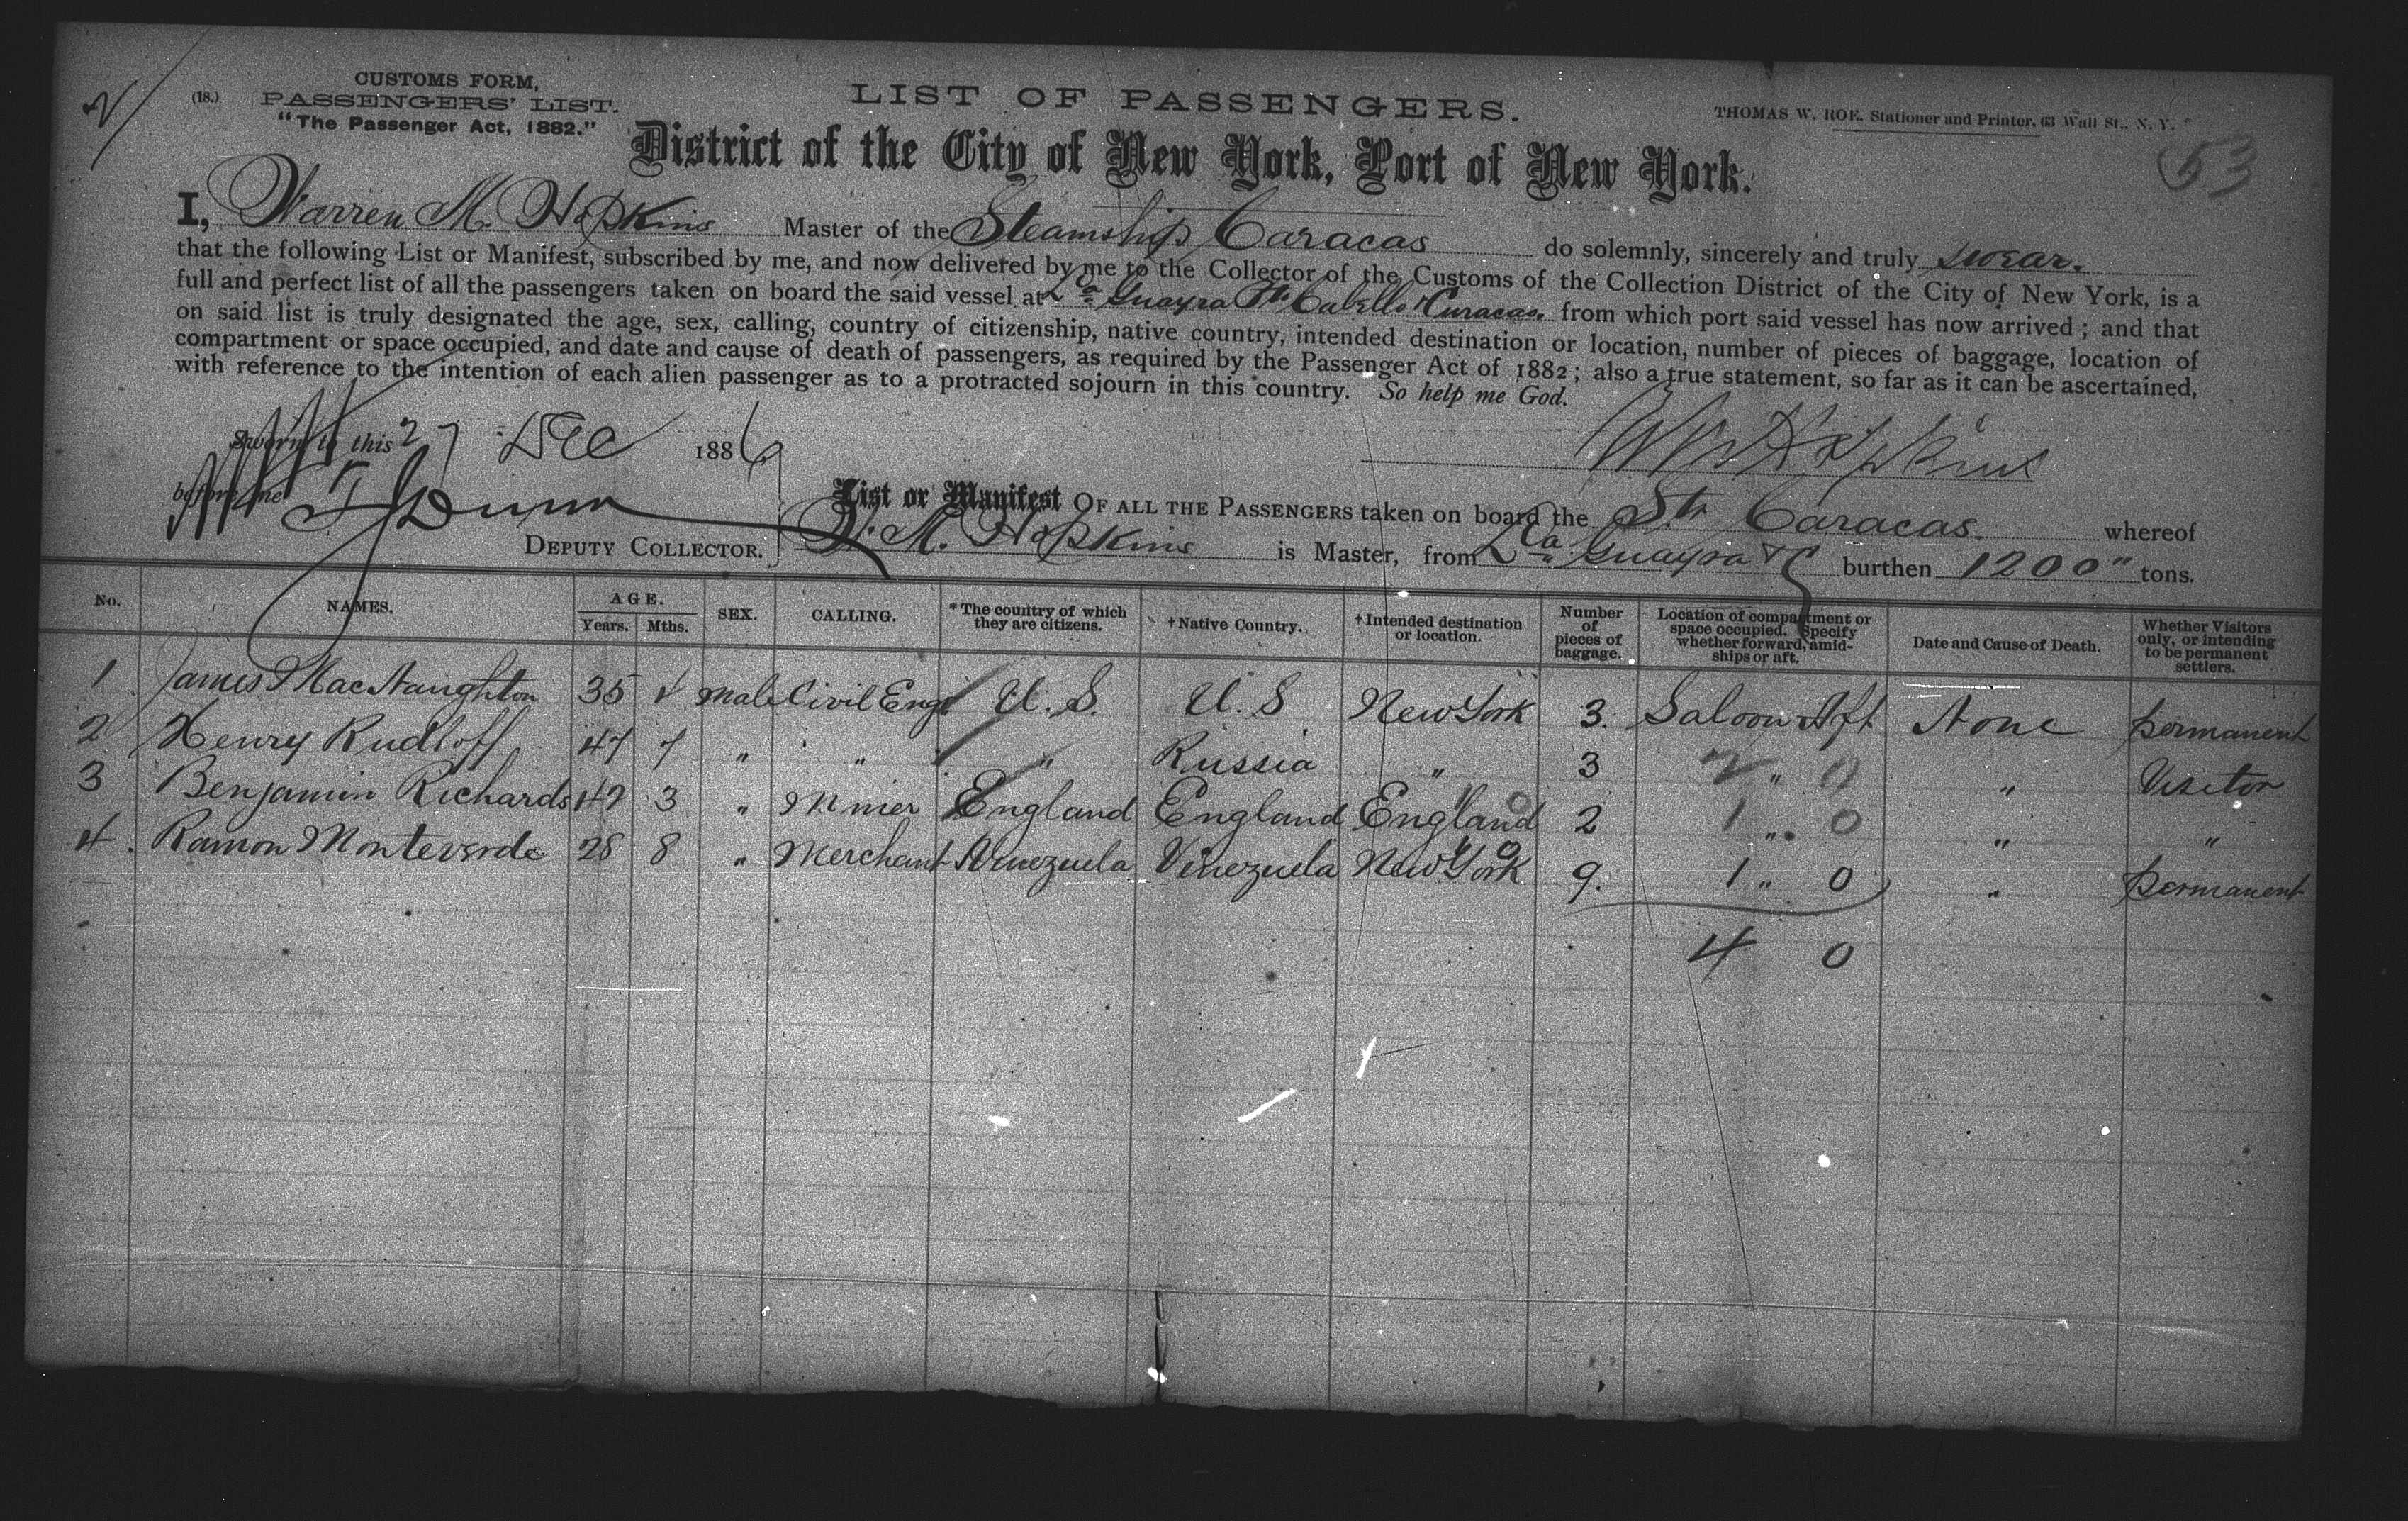 2/
CUSTOMS FORM,
(18.) PASSENGERS' LIST.
"The Passenger Act, 1882."
LIST OF PASSENGERS.
THOMAS W. ROE. Stationer and Printer, 63 Wall St., N. Y.
53
District of the City of New York, Port of New York.
I, Warren M. Hopkins Master of the Steamship Caracas do solemnly, sincerely and truly swear.
that the following List or Manifest, subscribed by me, and now delivered by me to the Collector of the Customs of the Collection District of the City of New York, is a
full and perfect list of all the passengers taken on board the said vessel at La Guayra Pto Cabello & Curacao. from which port said vessel has now arrived; and that
on said list is truly designated the age, sex, calling, country of citizenship, native country, intended destination or location, number of pieces of baggage, location of
compartment or space occupied, and date and cause of death of passengers, as required by the Passenger Act of 1882; also a true statement, so far as it can be ascertained,
with reference to the intention of each alien passenger as to a protracted sojourn in this country. So help me God.
Sworn to this 27 Dec 1886
WM Hopkins
before me Dunn
DEPUTY COLLECTOR.
List or Manifest OF ALL THE PASSENGERS taken on board the Str Caracas. whereof
W. M. Hopkins is Master, from La Guayra &c burthen 1200 " tons.
No. NAMES. AGE. Years. Mths. SEX. CALLING. *The country of which they are citizens. †Native Country. †Intended destination or location. Number of pieces of baggage. Location of compartment or space occupied. Specify whether forward, amidships or aft. Date and Cause of Death. Whether Visitors only, or intending to be permanent settlers.
1 James MacNaughton 35 4 Male Civil Engr U. S. U. S New York 3. Saloon Aft None permanent
2 Henry Rudloff 47 7 " " " Russia " 3 2 " 0 " Visitor
3 Benjamin Richards 42 3 " Minier England England England 2 1 " 0 " "
4. Ramon Monteverde 28 8 " Merchant Venezuela Venezuela New York 9. 1 " 0 " permanent
4 0